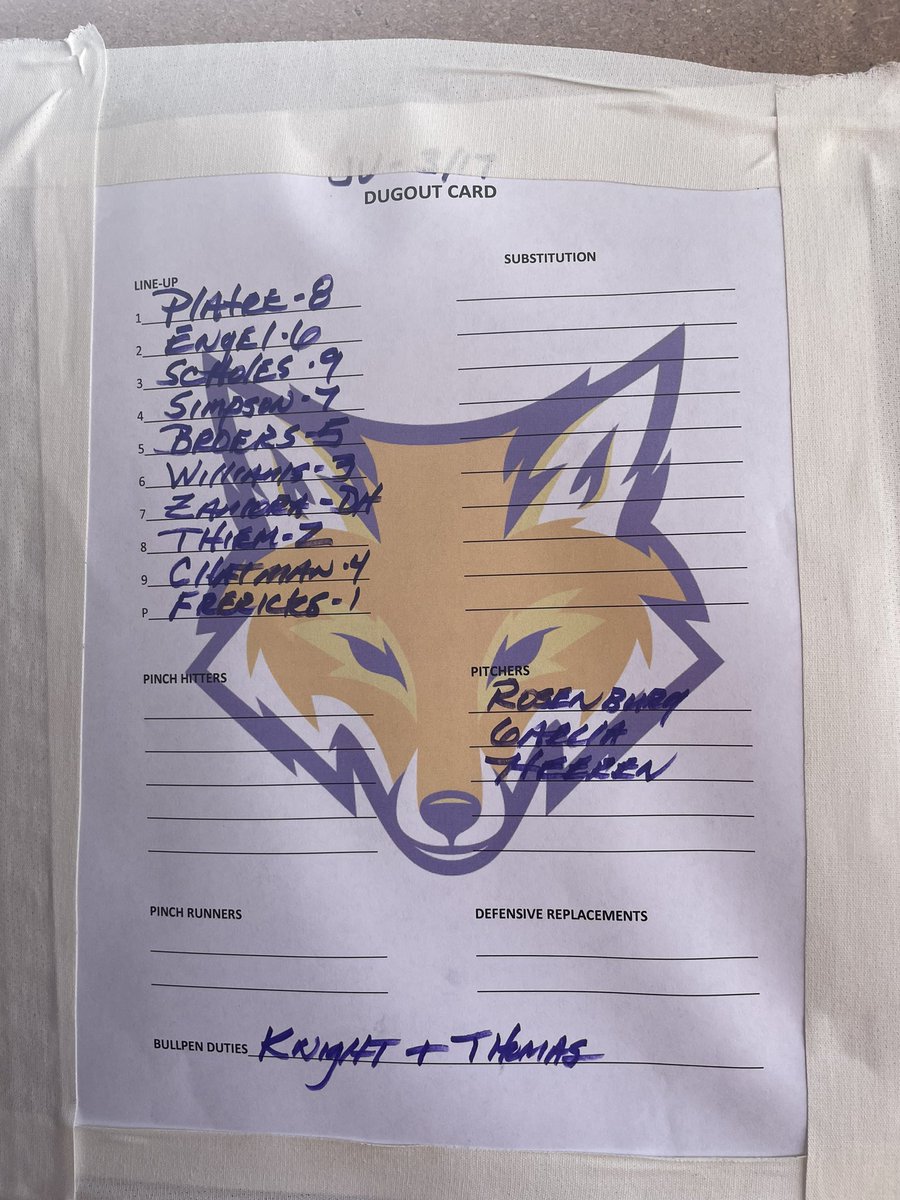 JV - 3/17
DUGOUT CARD
SUBSTITUTION
LINE-UP
1 PLATRE - 8
2 ENGEL - 6
3 SCHOLES - 9
4 SIMPSON - 7
5 BROERS - 5
6 WILLIAMS - 3
7 ZAMORA - DH
8 THIEM - 2
9 CHATMAN - 4
P FRERICKS - 1
PINCH HITTERS
PITCHERS
ROSENBURG
GARCIA
HEEREN
PINCH RUNNERS
DEFENSIVE REPLACEMENTS
BULLPEN DUTIES KNIGHT + THOMAS